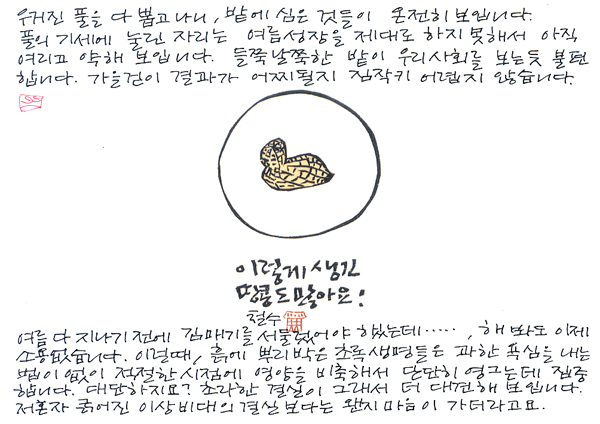 우거진 풀을 다 뽑고나니, 밭에 심은 것들이 온전히 보입니다.
풀의 기세에 눌린 자리는 여름성장을 제대로 하지못해서 아직
여리고 약해 보입니다. 들쭉날쭉한 밭이 우리사회를 보는듯 불편
합니다. 가을걷이 결과가 어찌될지 짐작키 어렵지 않습니다.
이렇게 생긴
땅콩도 많아요!
철수
여름 다 지나기 전에 김매기를 서둘렀어야 했는데·····, 해 봐도 이제
소용없습니다. 이럴때, 흙에 뿌리박은 초록생명들은 과한 욕심을 내는
법이 없이 적절한 시점에 영양을 비축해서 단단히 영그는데 집중
합니다. 대단하지요? 초라한 결실이 그래서 더 대견해 보입니다.
저혼자 굵어진 이상비대의 결실 보다는 왠지 마음이 가더라고요.